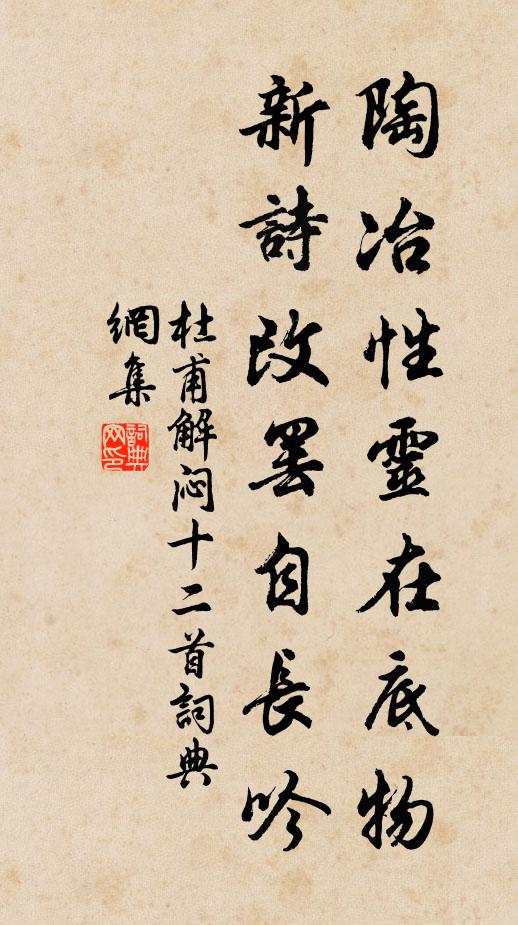 陶冶性靈在底物
新詩改罷自長吟
杜甫解闷十二首詞典
網集
詞典网印